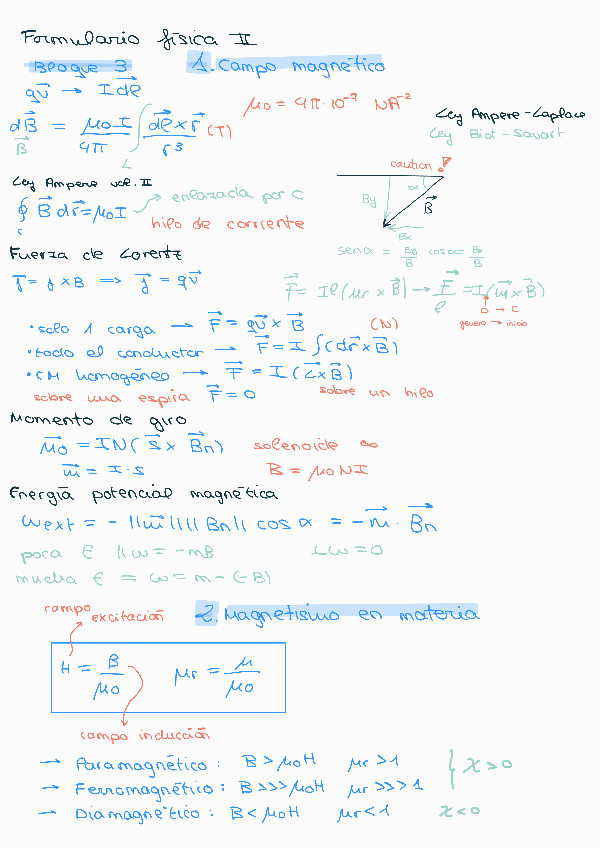 Formulario física II
Bloque 3 1. Campo magnético
q\vec{v} → I\vec{dl}
μ0 = 4π·10⁻⁷ NA⁻²
Ley Ampere-Laplace
Ley Biot-Savart
d\vec{B} = μ0 I / 4π ∫_L \vec{dl} x \vec{r} / r³ (T)
\vec{B}
caution!
α
By
\vec{B}
Bx
senα = By/B cosα = Bx/B
Ley Ampere vol. II
∮_c \vec{B} d\vec{r} = μ0 I → enlazada por C
hilo de corriente
Fuerza de Lorentz
\vec{f} = j x B ⟹ \vec{j} = q\vec{v}
\vec{F} = Il(\vec{ur} x \vec{B}) → \vec{F}/l = I(\vec{u} x \vec{B})
•solo 1 carga → \vec{F} = q\vec{v} x \vec{B} (N)
•todo el conductor → \vec{F} = I ∫(d\vec{r} x \vec{B})
•CM homogéneo → \vec{F} = I (\vec{L} x \vec{B})
sobre una espira \vec{F} = 0 sobre un hilo
Momento de giro
\vec{μ0} = IN(\vec{s} x \vec{Bn}) solenoide ∞
\vec{m} = I·s B = μ0NI
Energía potencial magnética
Wext = - ||\vec{m}|| ||Bn|| cos α = -\vec{m} · \vec{Bn}
poca E ||w = -mB ⊥w = 0
mucha E = w = m-(-B)
campo excitación
2. Magnetismo en materia
H = B/μ0 μr = μ/μ0
campo inducción
→ Paramagnético: B > μ0H μr > 1
→ Ferromagnético: B >>> μ0H μr >>> 1 } χ > 0
→ Diamagnético: B < μ0H μr < 1 χ < 0